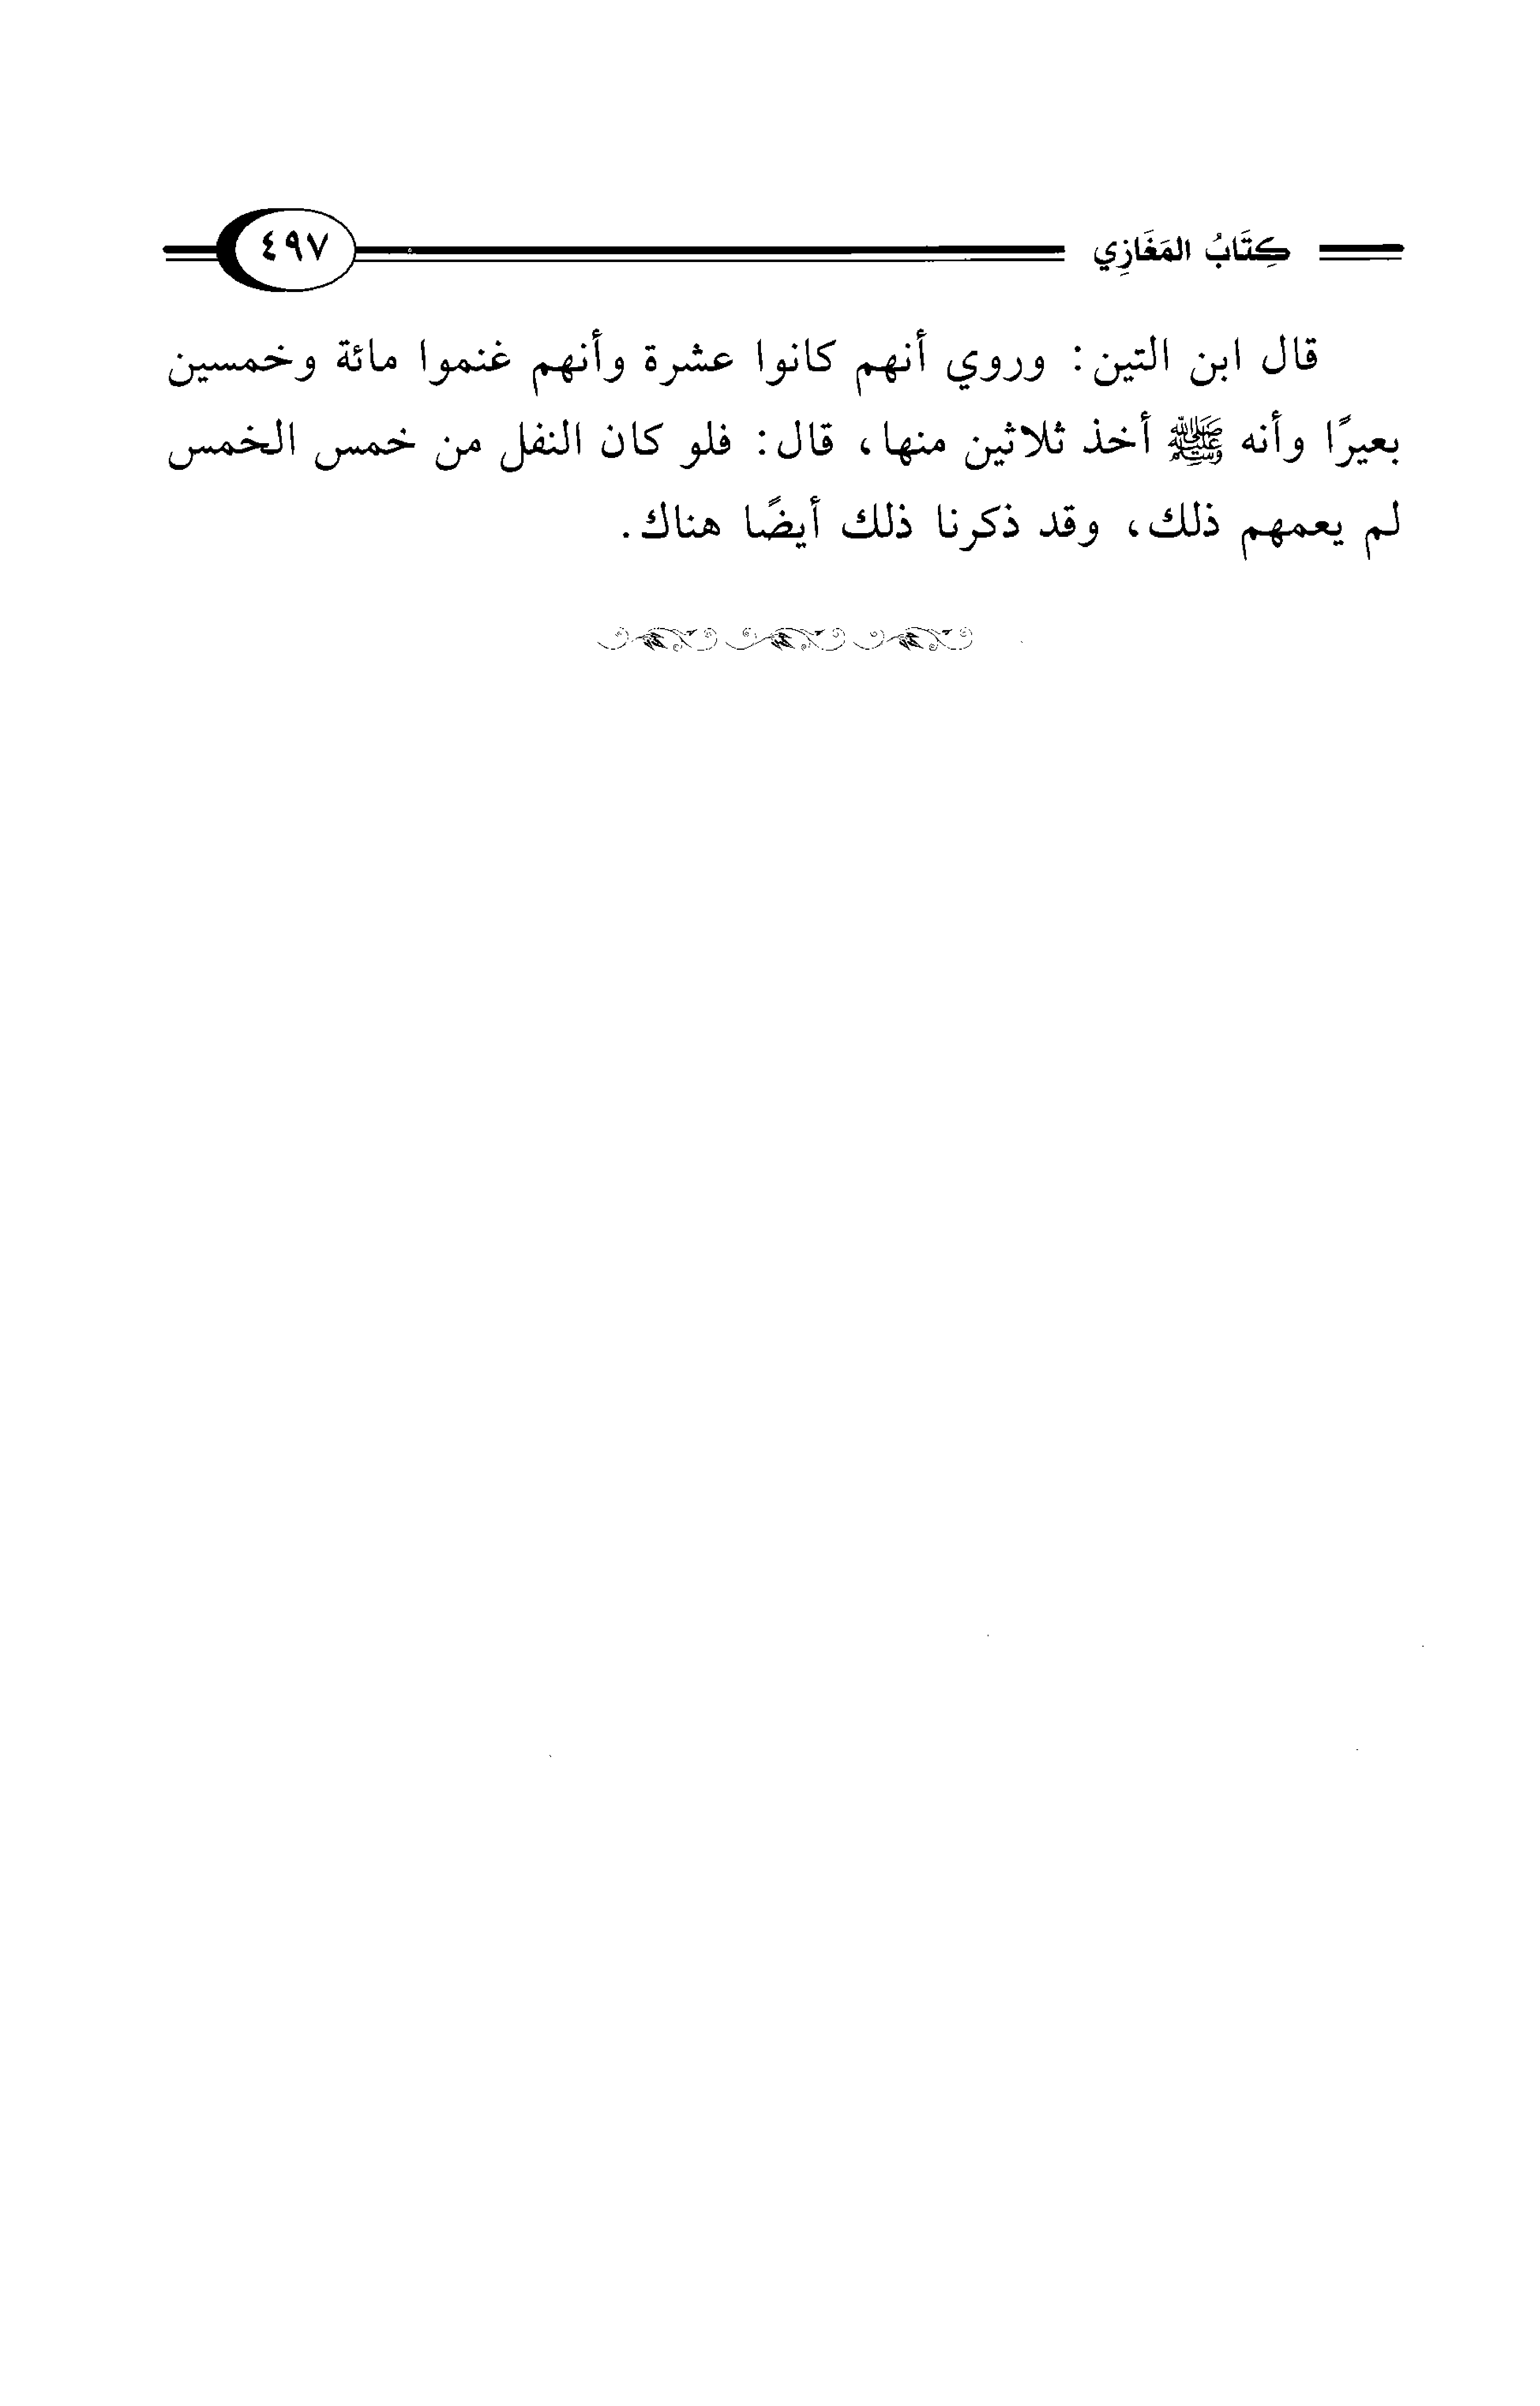 كِتَابُ المَغَازِي ٤٩٧
قال ابن التين: وروي أنهم كانوا عشرة وأنهم غنموا مائة وخمسين
بعيرًا وأنه ﷺ أخذ ثلاثين منها، قال: فلو كان النفل من خمس الخمس
لم يعمهم ذلك، وقد ذكرنا ذلك أيضًا هناك.